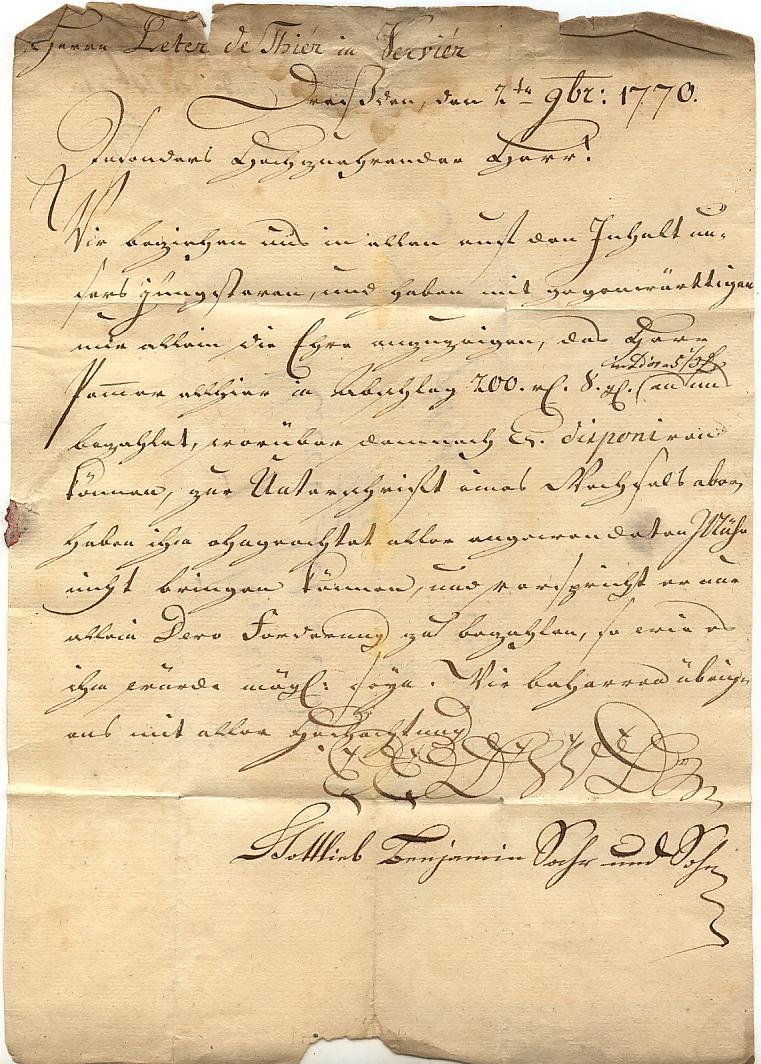 Herrn Peter de Thiér in Verviér
Dreßden, den 2ten 9br: 1770.
Insonders Hochzuehrender Herr!
Wir beziehen uns in allen auf den Inhalt un-
sers jüngsteren, und haben mit gegenwärttigen
nur allein die Ehre anzuzeigen, das Herr
allhier in Abschlag 200. rl. 8. gl.
bezahlet, worüber demnach E. disponiren
können, zur Unterschrifft eines Wechsels aber
haben ihn ohngeachtet aller angewendeten Mühe
nicht bringen können, und verspricht er nur
allein Dero Forderung zu bezahlen, so wie es
ihm würde mögl: seyn. Wir beharren übrig-
ens mit aller Hochachtung
Gottlieb Benjamin Sohr und Sohn